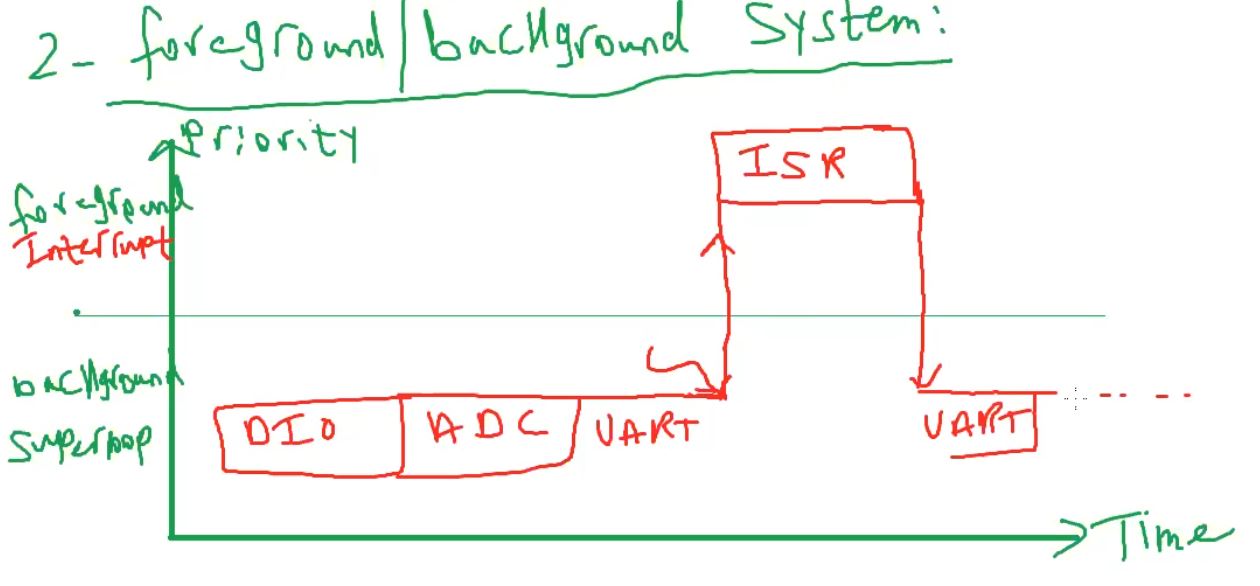 2- foreground/background System:
Priority
ISR
foreground
Interrupt
background
Superloop
DIO ADC UART UART
Time